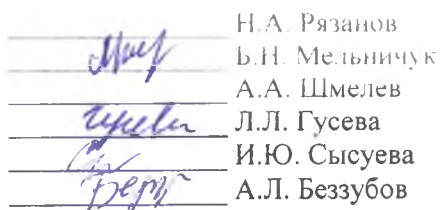 Н.А. Рязанов
Б.Н. Мельничук
А.А. Шмелев
Л.Л. Гусева
И.Ю. Сысуева
А.Л. Беззубов